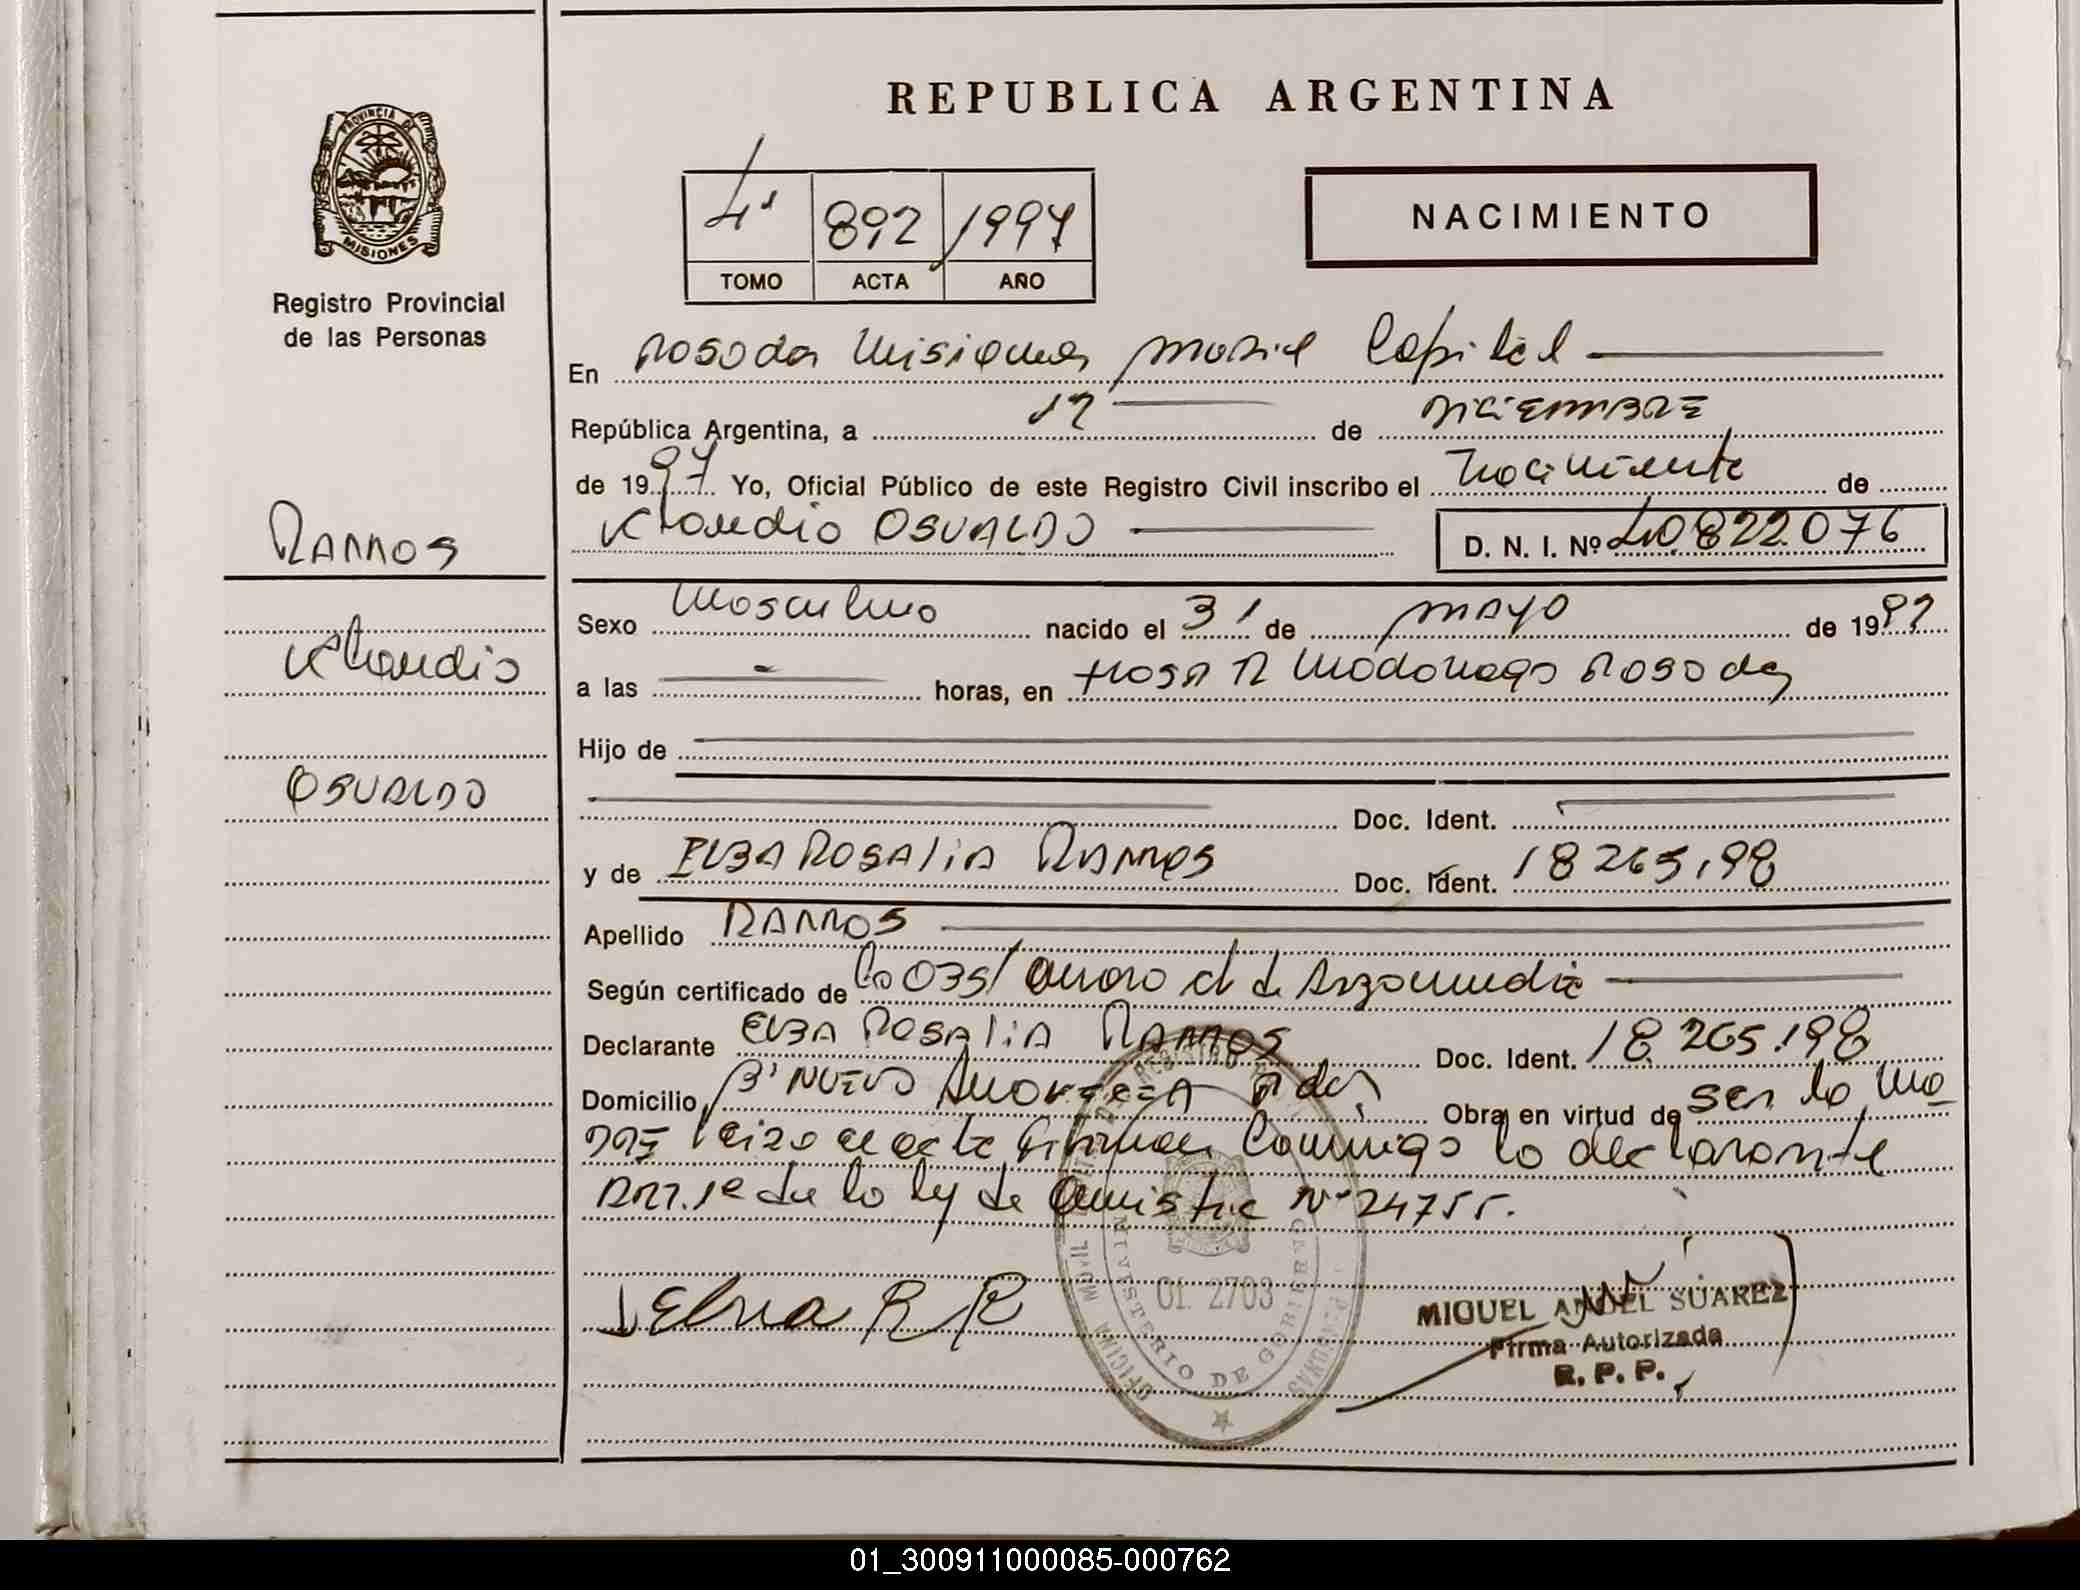 REPUBLICA ARGENTINA
PROVINCIA DE
MISIONES
Registro Provincial
de las Personas
4º 892 1997
TOMO ACTA AÑO
NACIMIENTO
En Posadas Misiones Capital
República Argentina, a 12 de DICIEMBRE
de 1997 Yo, Oficial Público de este Registro Civil inscribo el Nacimiento de
Klaudio OSVALDO D. N. I. Nº 40.822.076
RAMOS
Klaudio
OSVALDO
Sexo Masculino nacido el 31 de MAYO de 19
a las horas, en HOSP R Madariaga Posadas
Hijo de
Doc. Ident.
y de ELBA ROSALIA RAMOS Doc. Ident. 18265198
Apellido RAMOS
Según certificado de
Declarante ELBA ROSALIA RAMOS Doc. Ident. 18.265.198
Domicilio Bº NUEVO Pdas, Obra en virtud de ser la MA
DRE leida el acta firman conmigo la declarante
ART. 1º de la ley de amnistia Nº 24755.
Elva R R
01 2703
MINISTERIO DE GOBIERNO
MIGUEL ANGEL SUAREZ
Firma Autorizada
R. P. P.
01_300911000085-000762